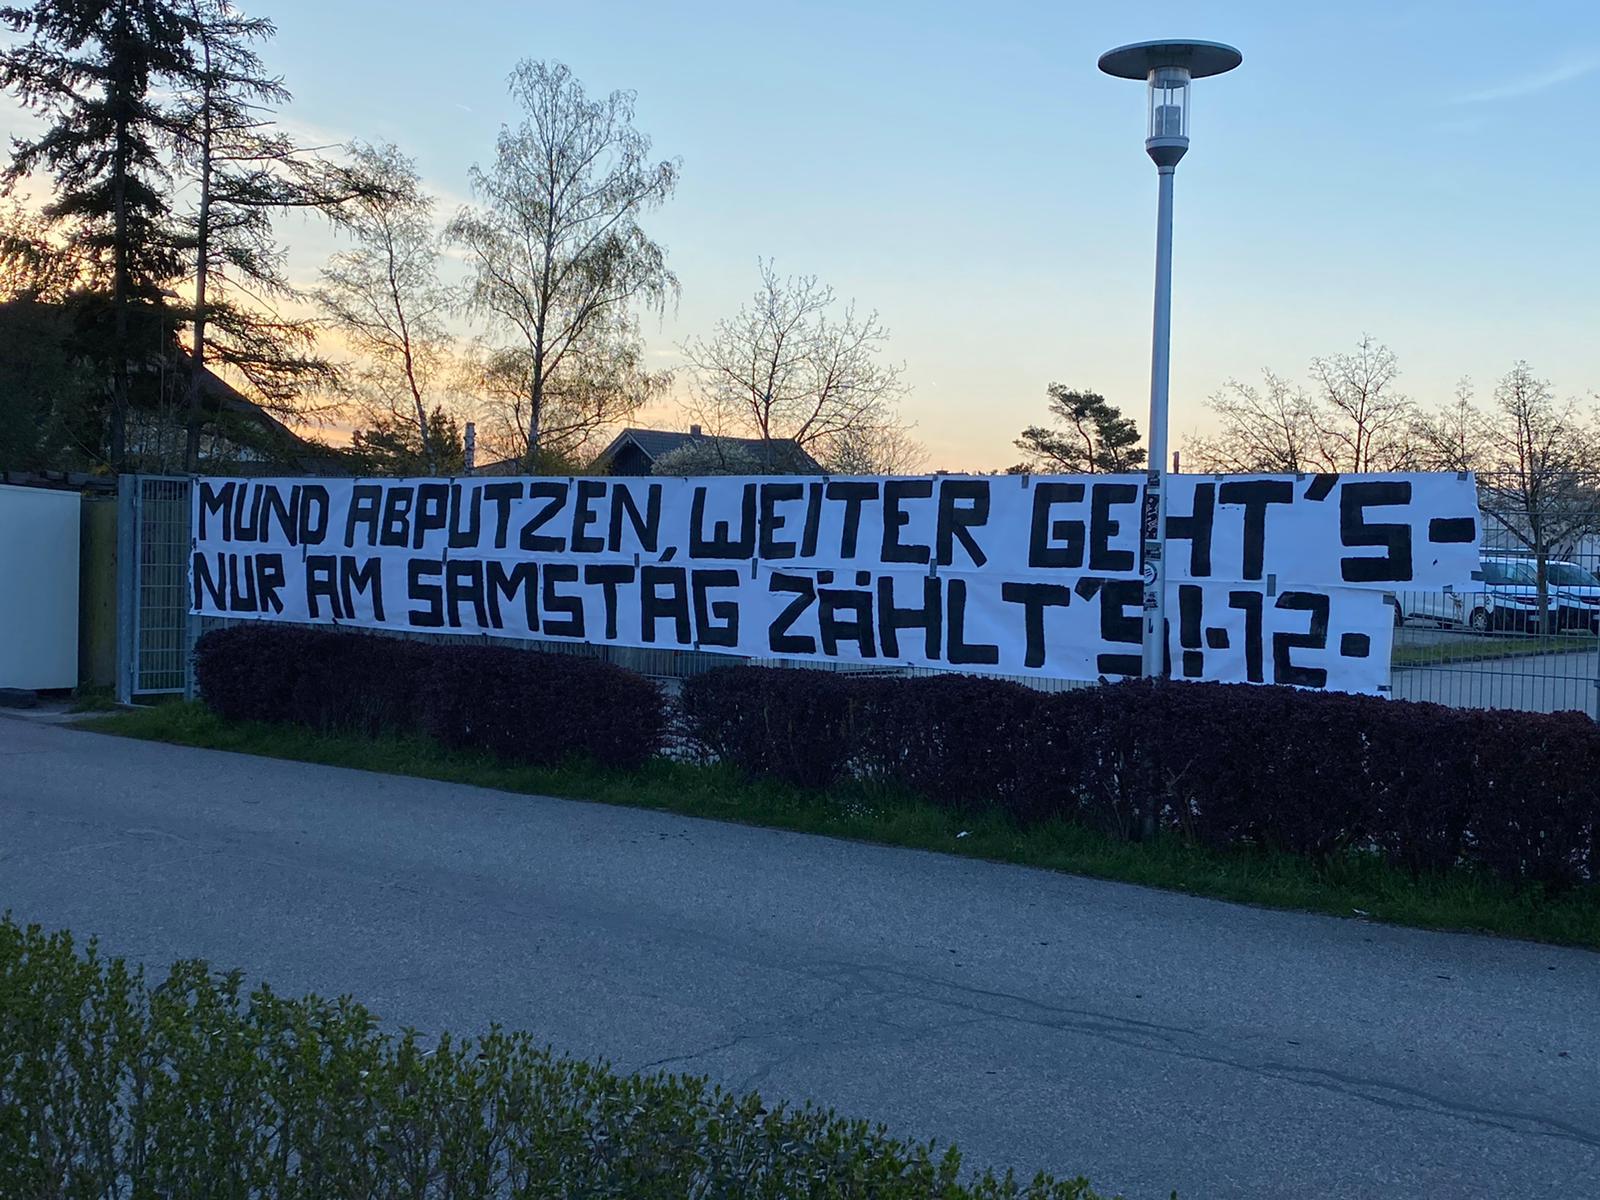 MUND ABPUTZEN, WEITER GEHT'S-
NUR AM SAMSTAG ZÄHLT'S!·12·